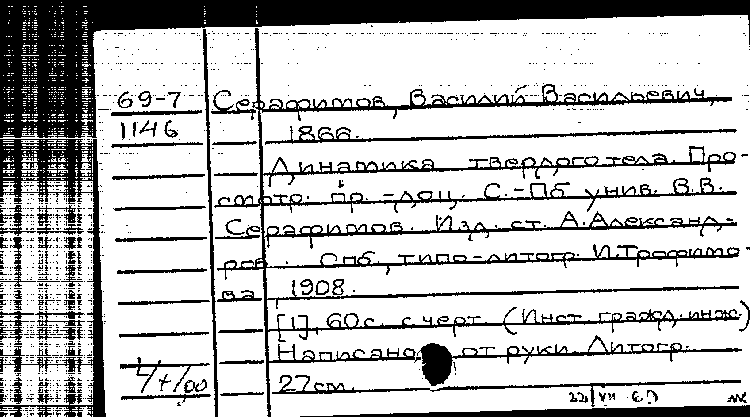 69-7 Серафимов, Василий Васильевич,
1146 1866.
Динамика твердого тела. Про-
смотр. пр.-доц. С.-Пб унив. В.В.
Серафимов. Изд. ст. А.Александ-
ров. Спб., типо-литогр. И.Трофимо-
ва, 1908.
[1], 60с. с черт. (Инст. гражд. инж.)
Написано от руки. Литогр.
27см.